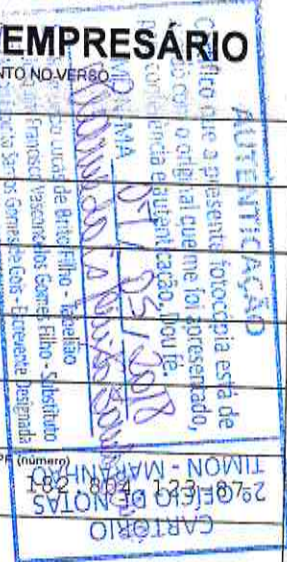 EMPRESÁRIO
NTO NO VERSO
AUTENTICAÇÃO
Certifico que a presente fotocópia está de
o original que me foi apresentado,
e autenticação. Dou fé.
07/05/2018
de Brito Filho - Tabelião
Francisco Vasconcelos Gomes Filho - Substituto
Gomes de Gois - Escrevente Designada
(número)
182.804.123-87
CARTÓRIO
2º OFÍCIO DE NOTAS
TIMON - MARANHÃO